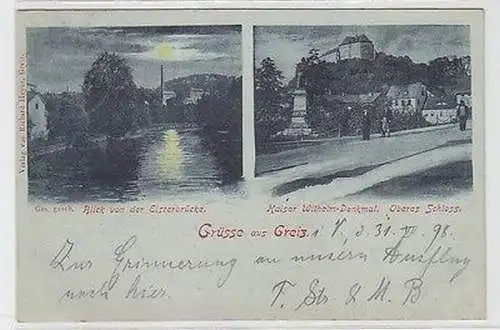 Verlag von Richard Heyer, Greiz.
Ges. gesch. Blick von der Elsterbrücke.
Kaiser Wilhelm-Denkmal. Oberes Schloss.
Grüsse aus Greiz i/V, d. 31. VII 98.
Zur Erinnerung an unsern Ausflug
nach hier. F. Str. & M. B